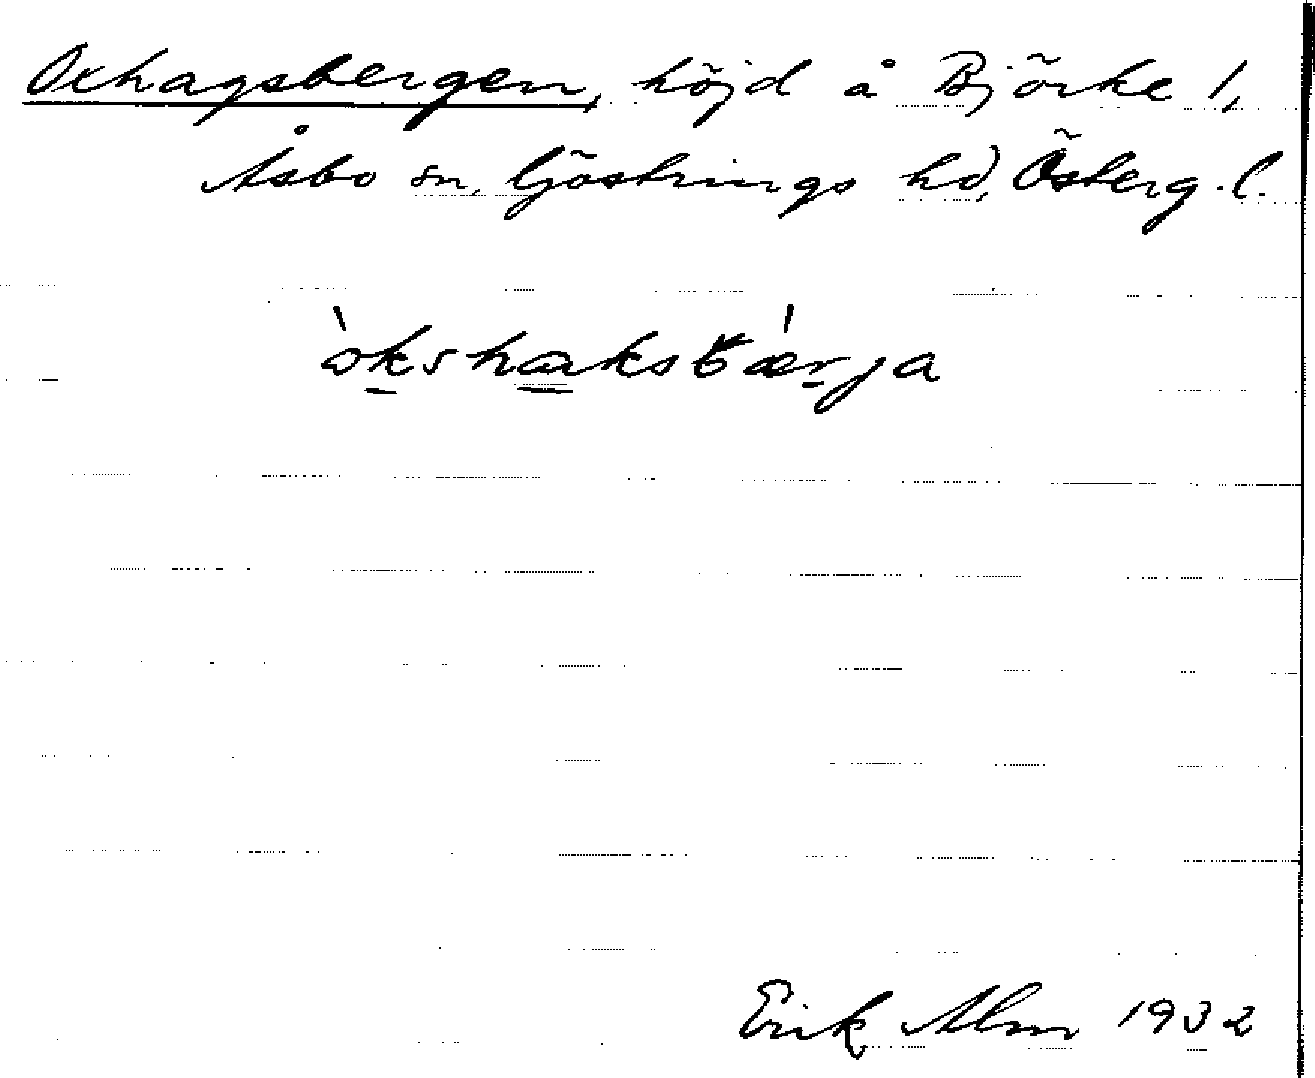 Oxhagsbergen, höjd å Björke 1,
Åsbo sn. Göstrings hd, Österg. l.
òkshaksbá̈rja
Erik Alm 1932